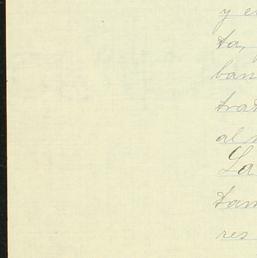 y e
ta,
ban
tra
al
La
tam
res